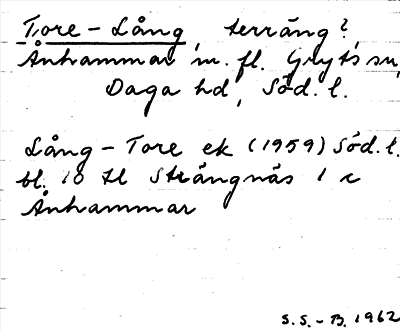 Tore-Lång, terräng?
Ånhammar m. fl. Gryts sn,
Daga hd, Söd. l.
Lång-Tore ek (1959) Söd. l.
bl. 10 H Strängnäs 1 c
Ånhammar
S.S.-B. 1962